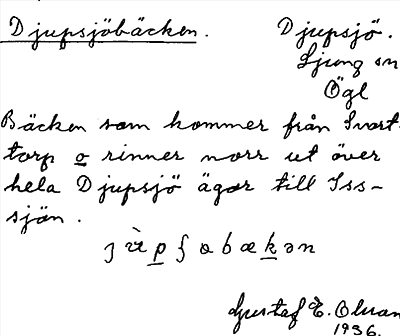 Djupsjöbäcken. Djupsjö.
Ljung sn
Ögl
Bäcken som kommer från Svart-
torp o rinner norr ut över
hela Djupsjö ägor till Iss-
sjön.
Gustaf E. Olsson
1936.